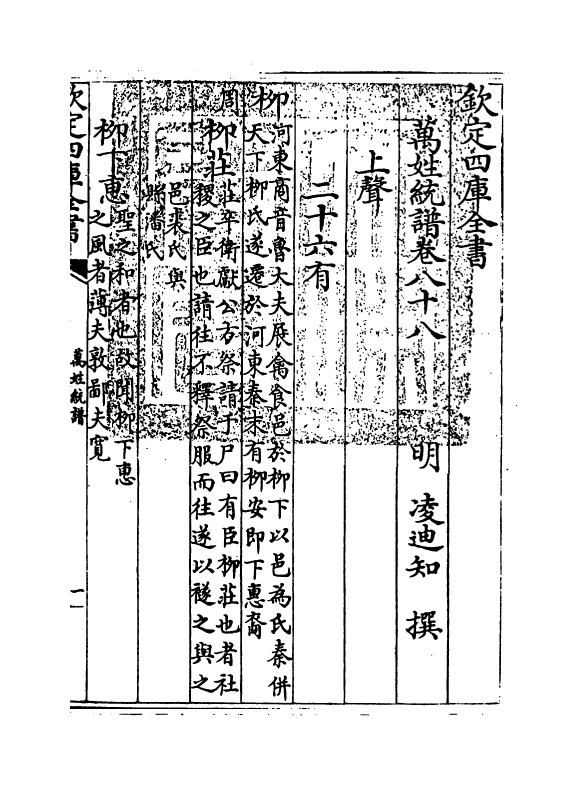 欽定四庫全書
萬姓統譜卷八十八
明 凌迪知 撰
上聲
二十六有
柳
河東商音魯大夫展禽食邑於柳下以邑為氏秦併
天下柳氏遂遷於河東秦末有柳安即下惠裔
周
柳莊
莊卒衛獻公方祭請于尸曰有臣柳莊也者社
稷之臣也請往不釋祭服而往遂以襚之與之
邑裘氏與
縣潘氏
柳下惠
聖之和者也故聞柳下惠
之風者薄夫敦鄙夫寛
欽定四庫全書
萬姓統譜
一